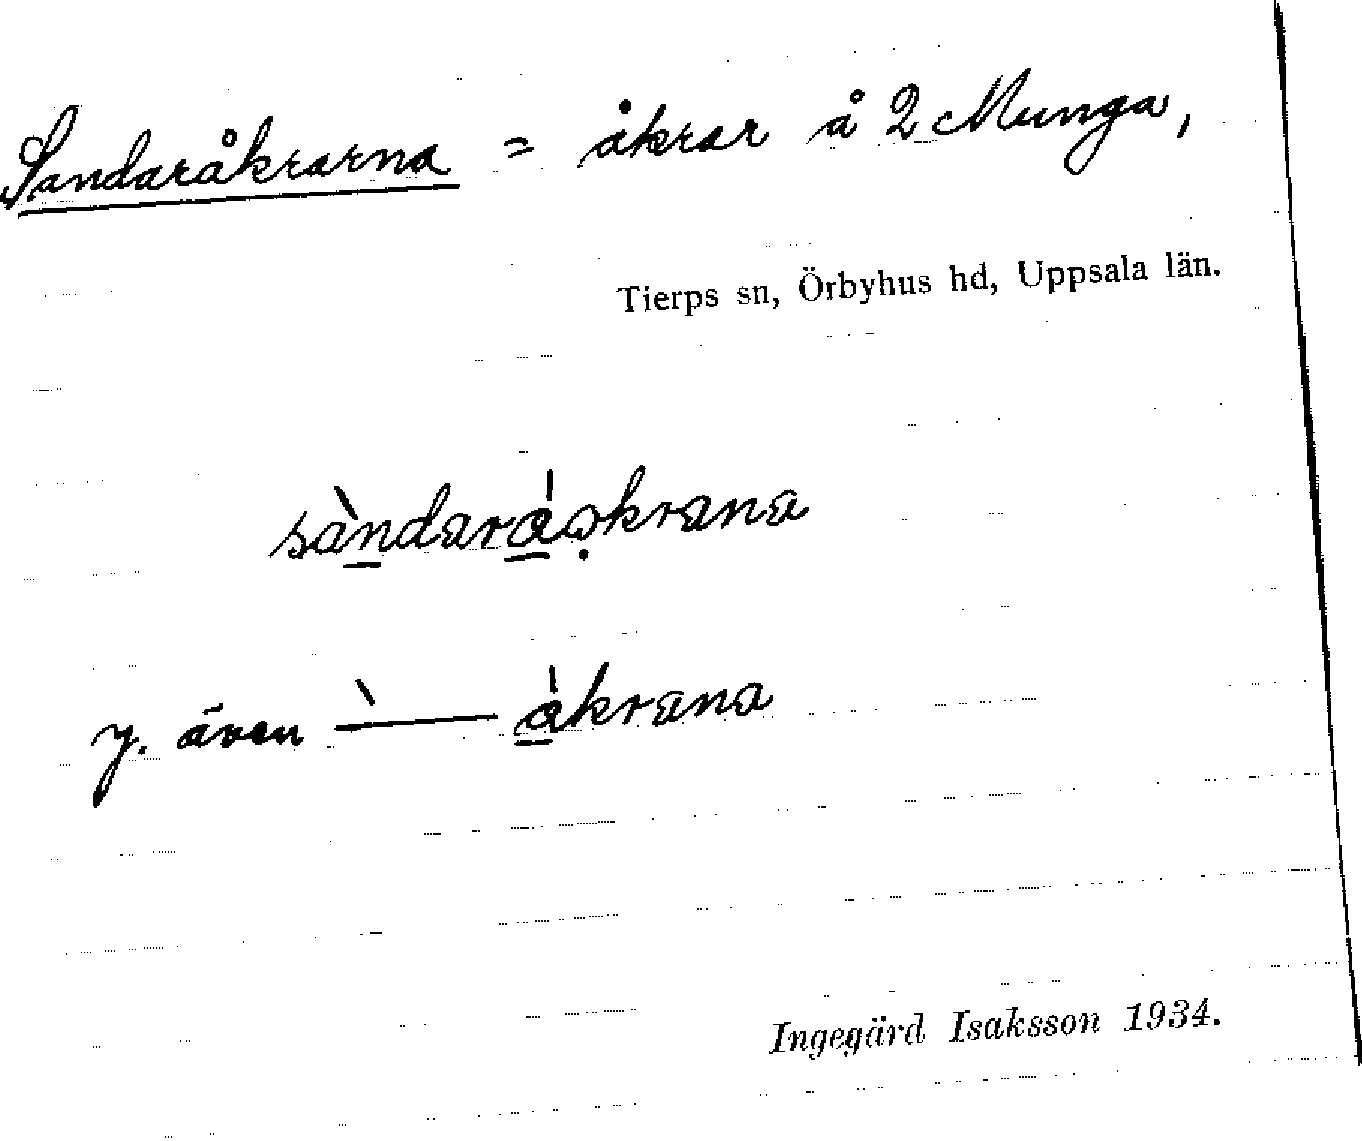 Sandaråkrarna = åkrar å 2 Munga,
Tierps sn, Örbyhus hd, Uppsala län.
y. även
Ingegärd Isaksson 1934.